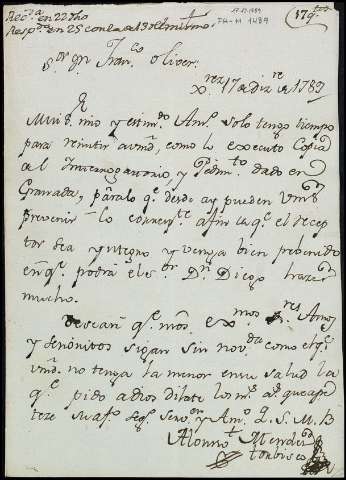 Rec.da en 22 dho
Resp.da en 25 con la de 13 del mismo.
17-12-1789
PH-M 1489
(17 q.tos)
S.or Dn Fran.co Oliver.
X.rez 17 de Diz.re de 1789
Mui S. mio y estim.do Am.o solo tengo tiempo
para remitir a vmd, como lo executo Copia
del Interrogatorio, y Pedim.to dado en
Granada, para lo q.e desde ay pueden Vm.s
prevenir lo conven.te afin de q.e el recep
tor sea yntegro y venga bien prebenido
en q.e podrá el s.or Dn Diego hazer
mucho.
Desearé q.e mis ex.mos S.res Amos
y señoritos sigan sin nov.d como el q.e
vmd. no tenga la menor en su salud la
q.e pido a dios dilate los m.s a.s que ape
teze su af.o seg.o serv.or y Am.o Q. S. M. B
Alonso Mendez